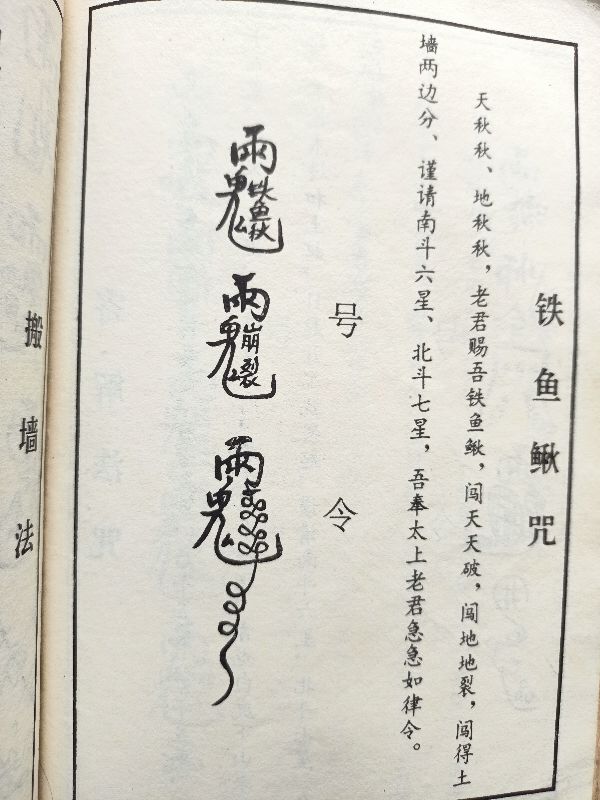 铁鱼鳅咒
天秋秋、地秋秋，老君赐吾铁鱼鳅，闯天天破，闯地地裂，闯得土
墙两边分、谨请南斗六星、北斗七星，吾奉太上老君急急如律令。
号令
雨鬼铁鱼秋
雨鬼崩裂
雨鬼
搬墙法